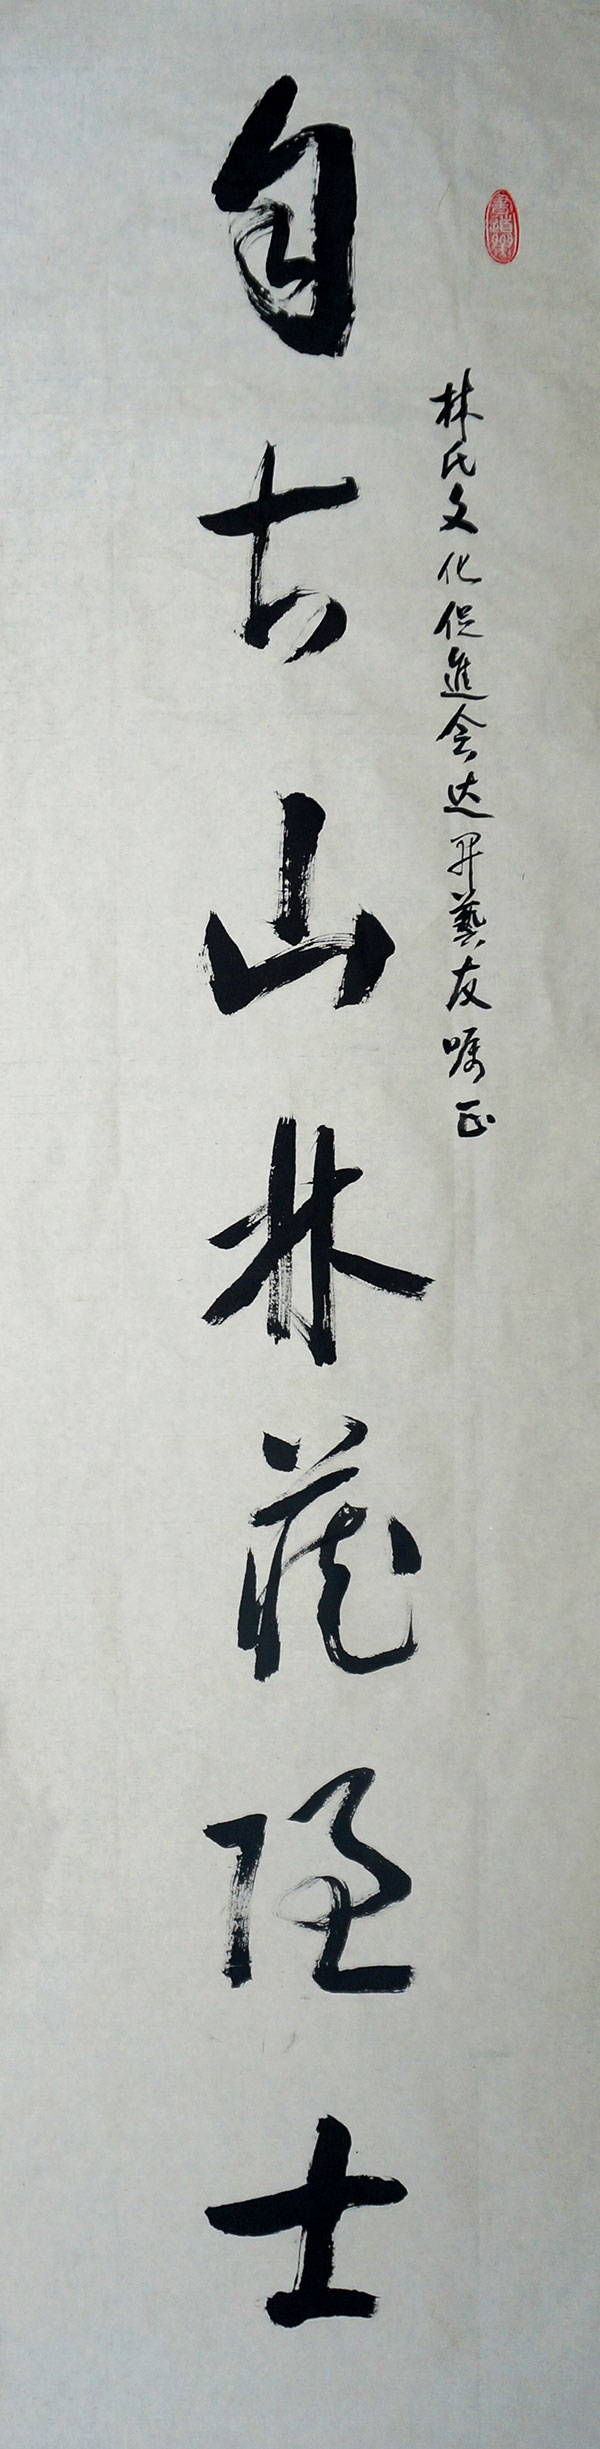 林氏文化促進会达昇藝友嘱正
自古山林藏隐士